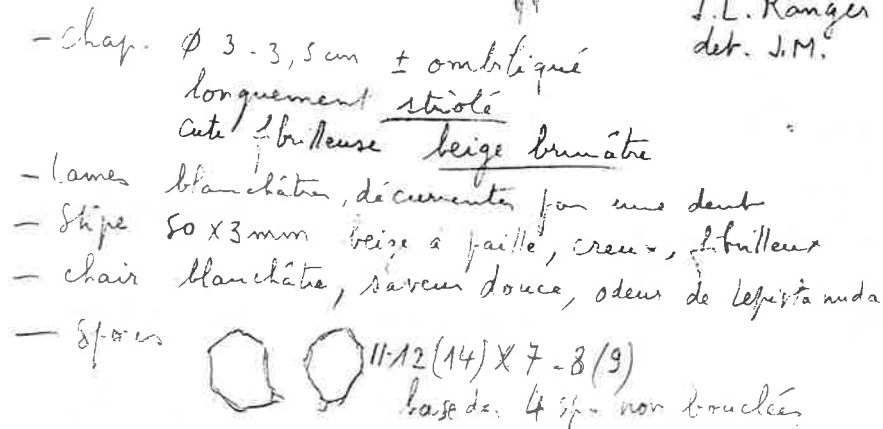 J.L. Ranger
det. J.M.
- chap. Ø 3-3,5 cm ± ombiliqué
longuement striolé
cute fibrilleuse beige brunâtre
- lames blanchâtres, décurrentes par une dent
- Stipe 50 x 3 mm beige à paille, creux, fibrilleux
- chair blanchâtre, saveur douce, odeur de Lepista nuda
- Spores 11-12 (14) X 7-8 (9)
4 sp. non bouclées